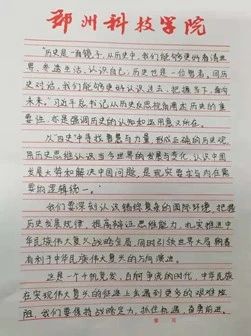 郑州科技学院
“历史是一面镜子，从历史中，我们能够更好看清世
界、参透生活、认识自己；历史也是一位智者，同历
史对话，我们能够更好认识过去、把握当下、面向
未来。”习近平总书记从历史思维阐述历史的重
要性，亦是强调历史的认知和运用意义所在。
从“历史”中寻找智慧与力量，形成正确的历史观，
用历史思维认识当今世界的发展与变化，认识中国
发展大势和解决中国问题，是现实要求与内在需
要的逻辑统一。
我们要深刻认识错综复杂的国际环境，把握
历史发展规律，提高辩证思维能力，扎实推进中
华民族伟大复兴战略全局，同时引领世界大局朝着
有利于中华民族伟大复兴的方向演进。
这是一个千帆竞发、百舸争流的时代，中华民族
在实现伟大复兴的征途上会遇到更多的艰难险
阻，我们要保持战略定力，抓住机遇，奋勇前进。